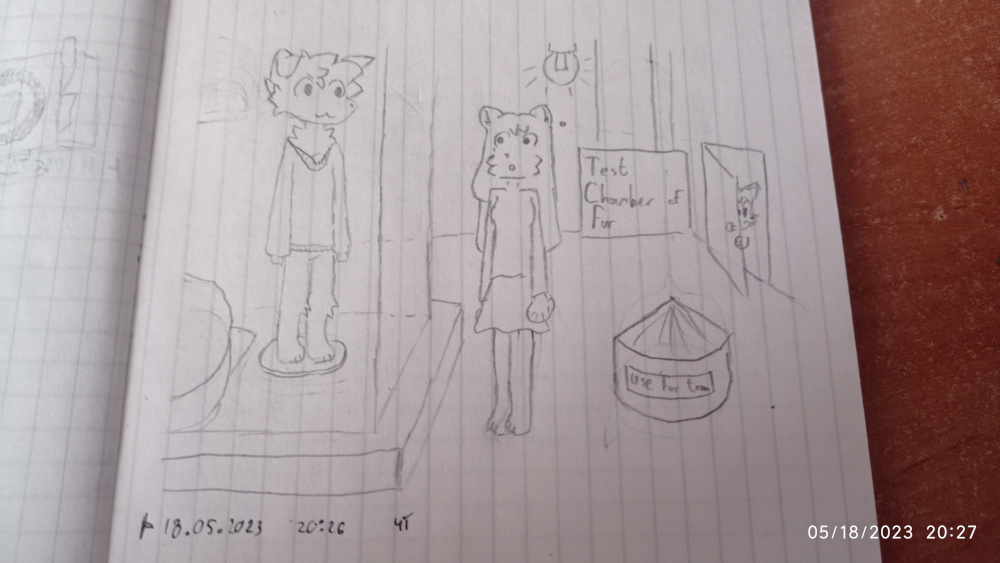 Test
Chamber of
Fur
Use Fur
18.05.2023 20:26 чт
05/18/2023 20:27